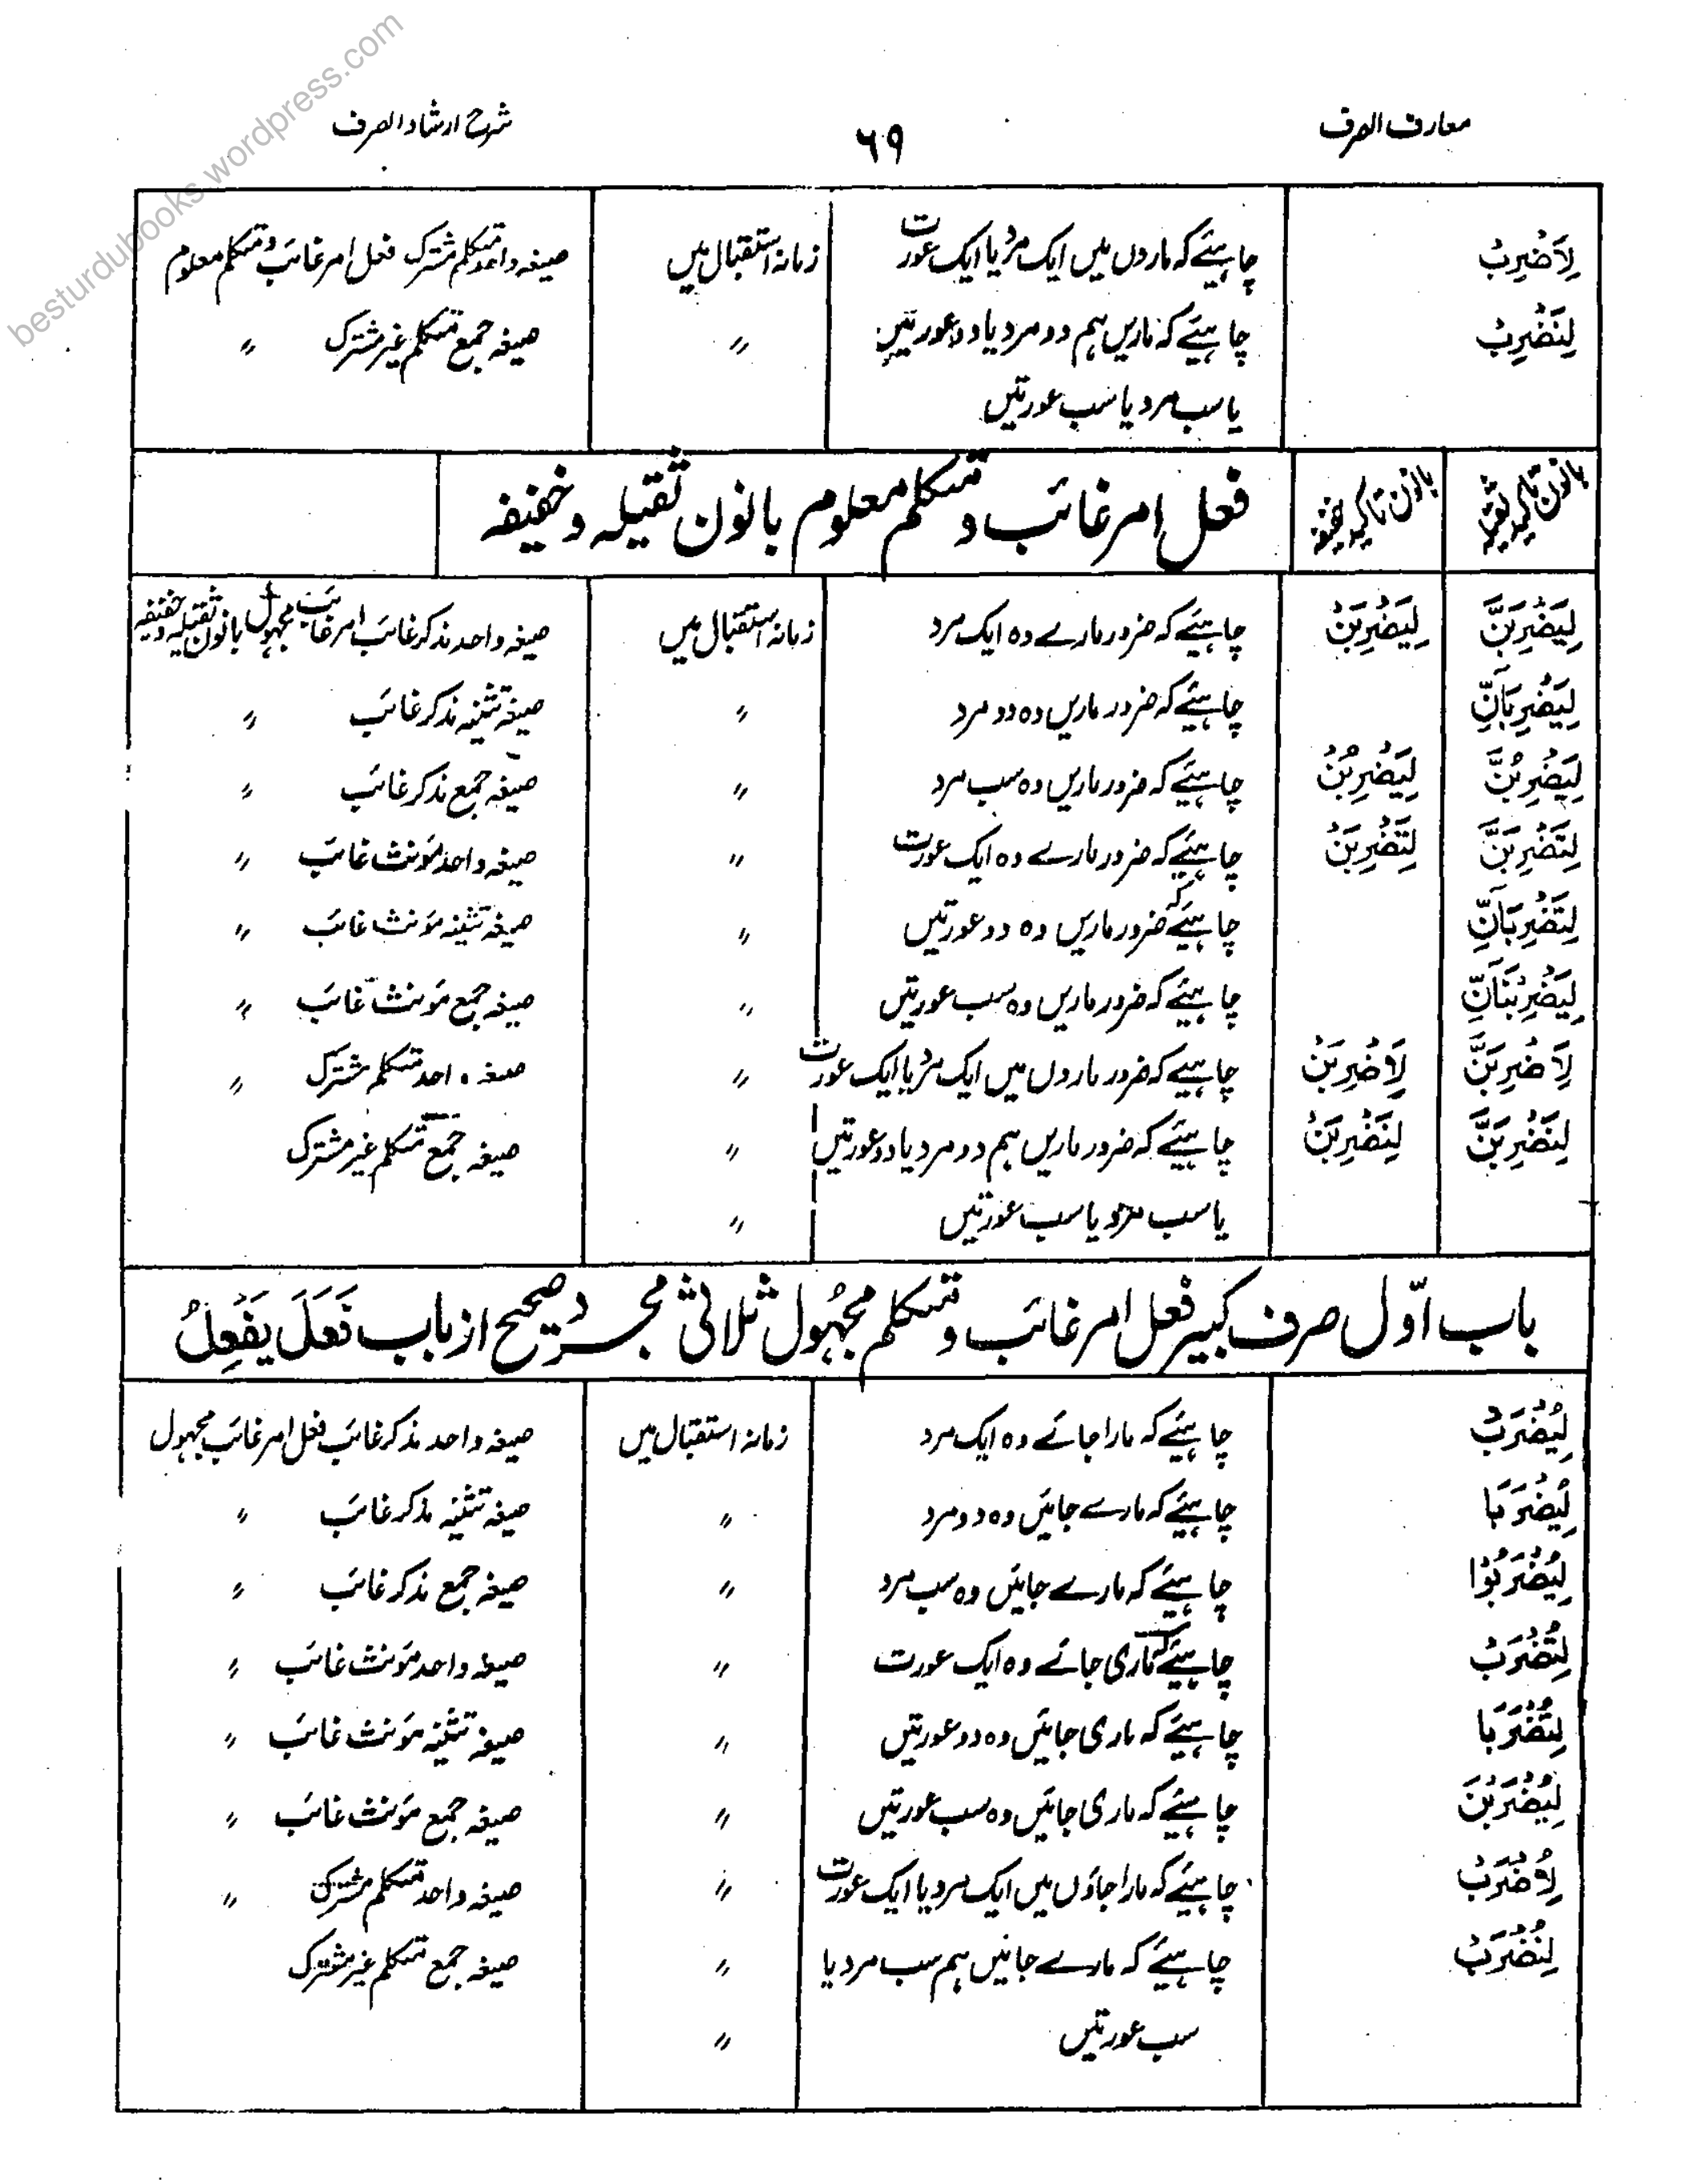 معارف الصرف ۶۹ شرح ارشاد الصرف
لِاَضْرِبْ چاہیئے کہ ماروں میں ایک مرد یا ایک عورت زمانہ استقبال میں صیغہ واحد متکلم مشترک فعل امر غائب و متکلم معلوم
لِنَضْرِبْ چاہیئے کہ ماریں ہم دو مرد یا دو عورتیں 〃 صیغہ جمع متکلم غیر مشترک 〃
یا سب مرد یا سب عورتیں
بانون تاکید ثقیلہ بانون تاکید خفیفہ فعل امر غائب و متکلم معلوم بانون ثقیلہ و خفیفہ
لِيَضْرِبَنَّ لِيَضْرِبَنْ چاہیئے کہ ضرور مارے وہ ایک مرد زمانہ استقبال میں صیغہ واحد مذکر غائب امر غائب مجہول بانون ثقیلہ و خفیفہ
لِيَضْرِبَانِّ چاہیئے کہ ضرور ماریں وہ دو مرد 〃 صیغہ تثنیہ مذکر غائب 〃
لِيَضْرِبُنَّ لِيَضْرِبُنْ چاہیئے کہ ضرور ماریں وہ سب مرد 〃 صیغہ جمع مذکر غائب 〃
لِتَضْرِبَنَّ لِتَضْرِبَنْ چاہیئے کہ ضرور مارے وہ ایک عورت 〃 صیغہ واحد مؤنث غائب 〃
لِتَضْرِبَانِّ چاہیئے کہ ضرور ماریں وہ دو عورتیں 〃 صیغہ تثنیہ مؤنث غائب 〃
لِيَضْرِبْنَانِّ چاہیئے کہ ضرور ماریں وہ سب عورتیں 〃 صیغہ جمع مؤنث غائب 〃
لِاَضْرِبَنَّ لِاَضْرِبَنْ چاہیئے کہ ضرور ماروں میں ایک مرد یا ایک عورت 〃 صیغہ واحد متکلم مشترک 〃
لِنَضْرِبَنَّ لِنَضْرِبَنْ چاہیئے کہ ضرور ماریں ہم دو مرد یا دو عورتیں 〃 صیغہ جمع متکلم غیر مشترک
یا سب مرد یا سب عورتیں 〃
باب اوّل صرف کبیر فعل امر غائب و متکلم مجہول ثلاثی مجرد صحیح از باب فَعَلَ يَفْعِلُ
لِيُضْرَبْ چاہیئے کہ مارا جائے وہ ایک مرد زمانہ استقبال میں صیغہ واحد مذکر غائب فعل امر غائب مجہول
لِيُضْرَبَا چاہیئے کہ مارے جائیں وہ دو مرد 〃 صیغہ تثنیہ مذکر غائب 〃
لِيُضْرَبُوْا چاہیئے کہ مارے جائیں وہ سب مرد 〃 صیغہ جمع مذکر غائب 〃
لِتُضْرَبْ چاہیئے کہ ماری جائے وہ ایک عورت 〃 صیغہ واحد مؤنث غائب 〃
لِتُضْرَبَا چاہیئے کہ ماری جائیں وہ دو عورتیں 〃 صیغہ تثنیہ مؤنث غائب 〃
لِيُضْرَبْنَ چاہیئے کہ ماری جائیں وہ سب عورتیں 〃 صیغہ جمع مؤنث غائب 〃
لِاُضْرَبْ چاہیئے کہ مارا جاؤں میں ایک مرد یا ایک عورت 〃 صیغہ واحد متکلم مشترک 〃
لِنُضْرَبْ چاہیئے کہ مارے جائیں ہم سب مرد یا 〃 صیغہ جمع متکلم غیر مشترک
سب عورتیں 〃
besturdubooks.wordpress.com